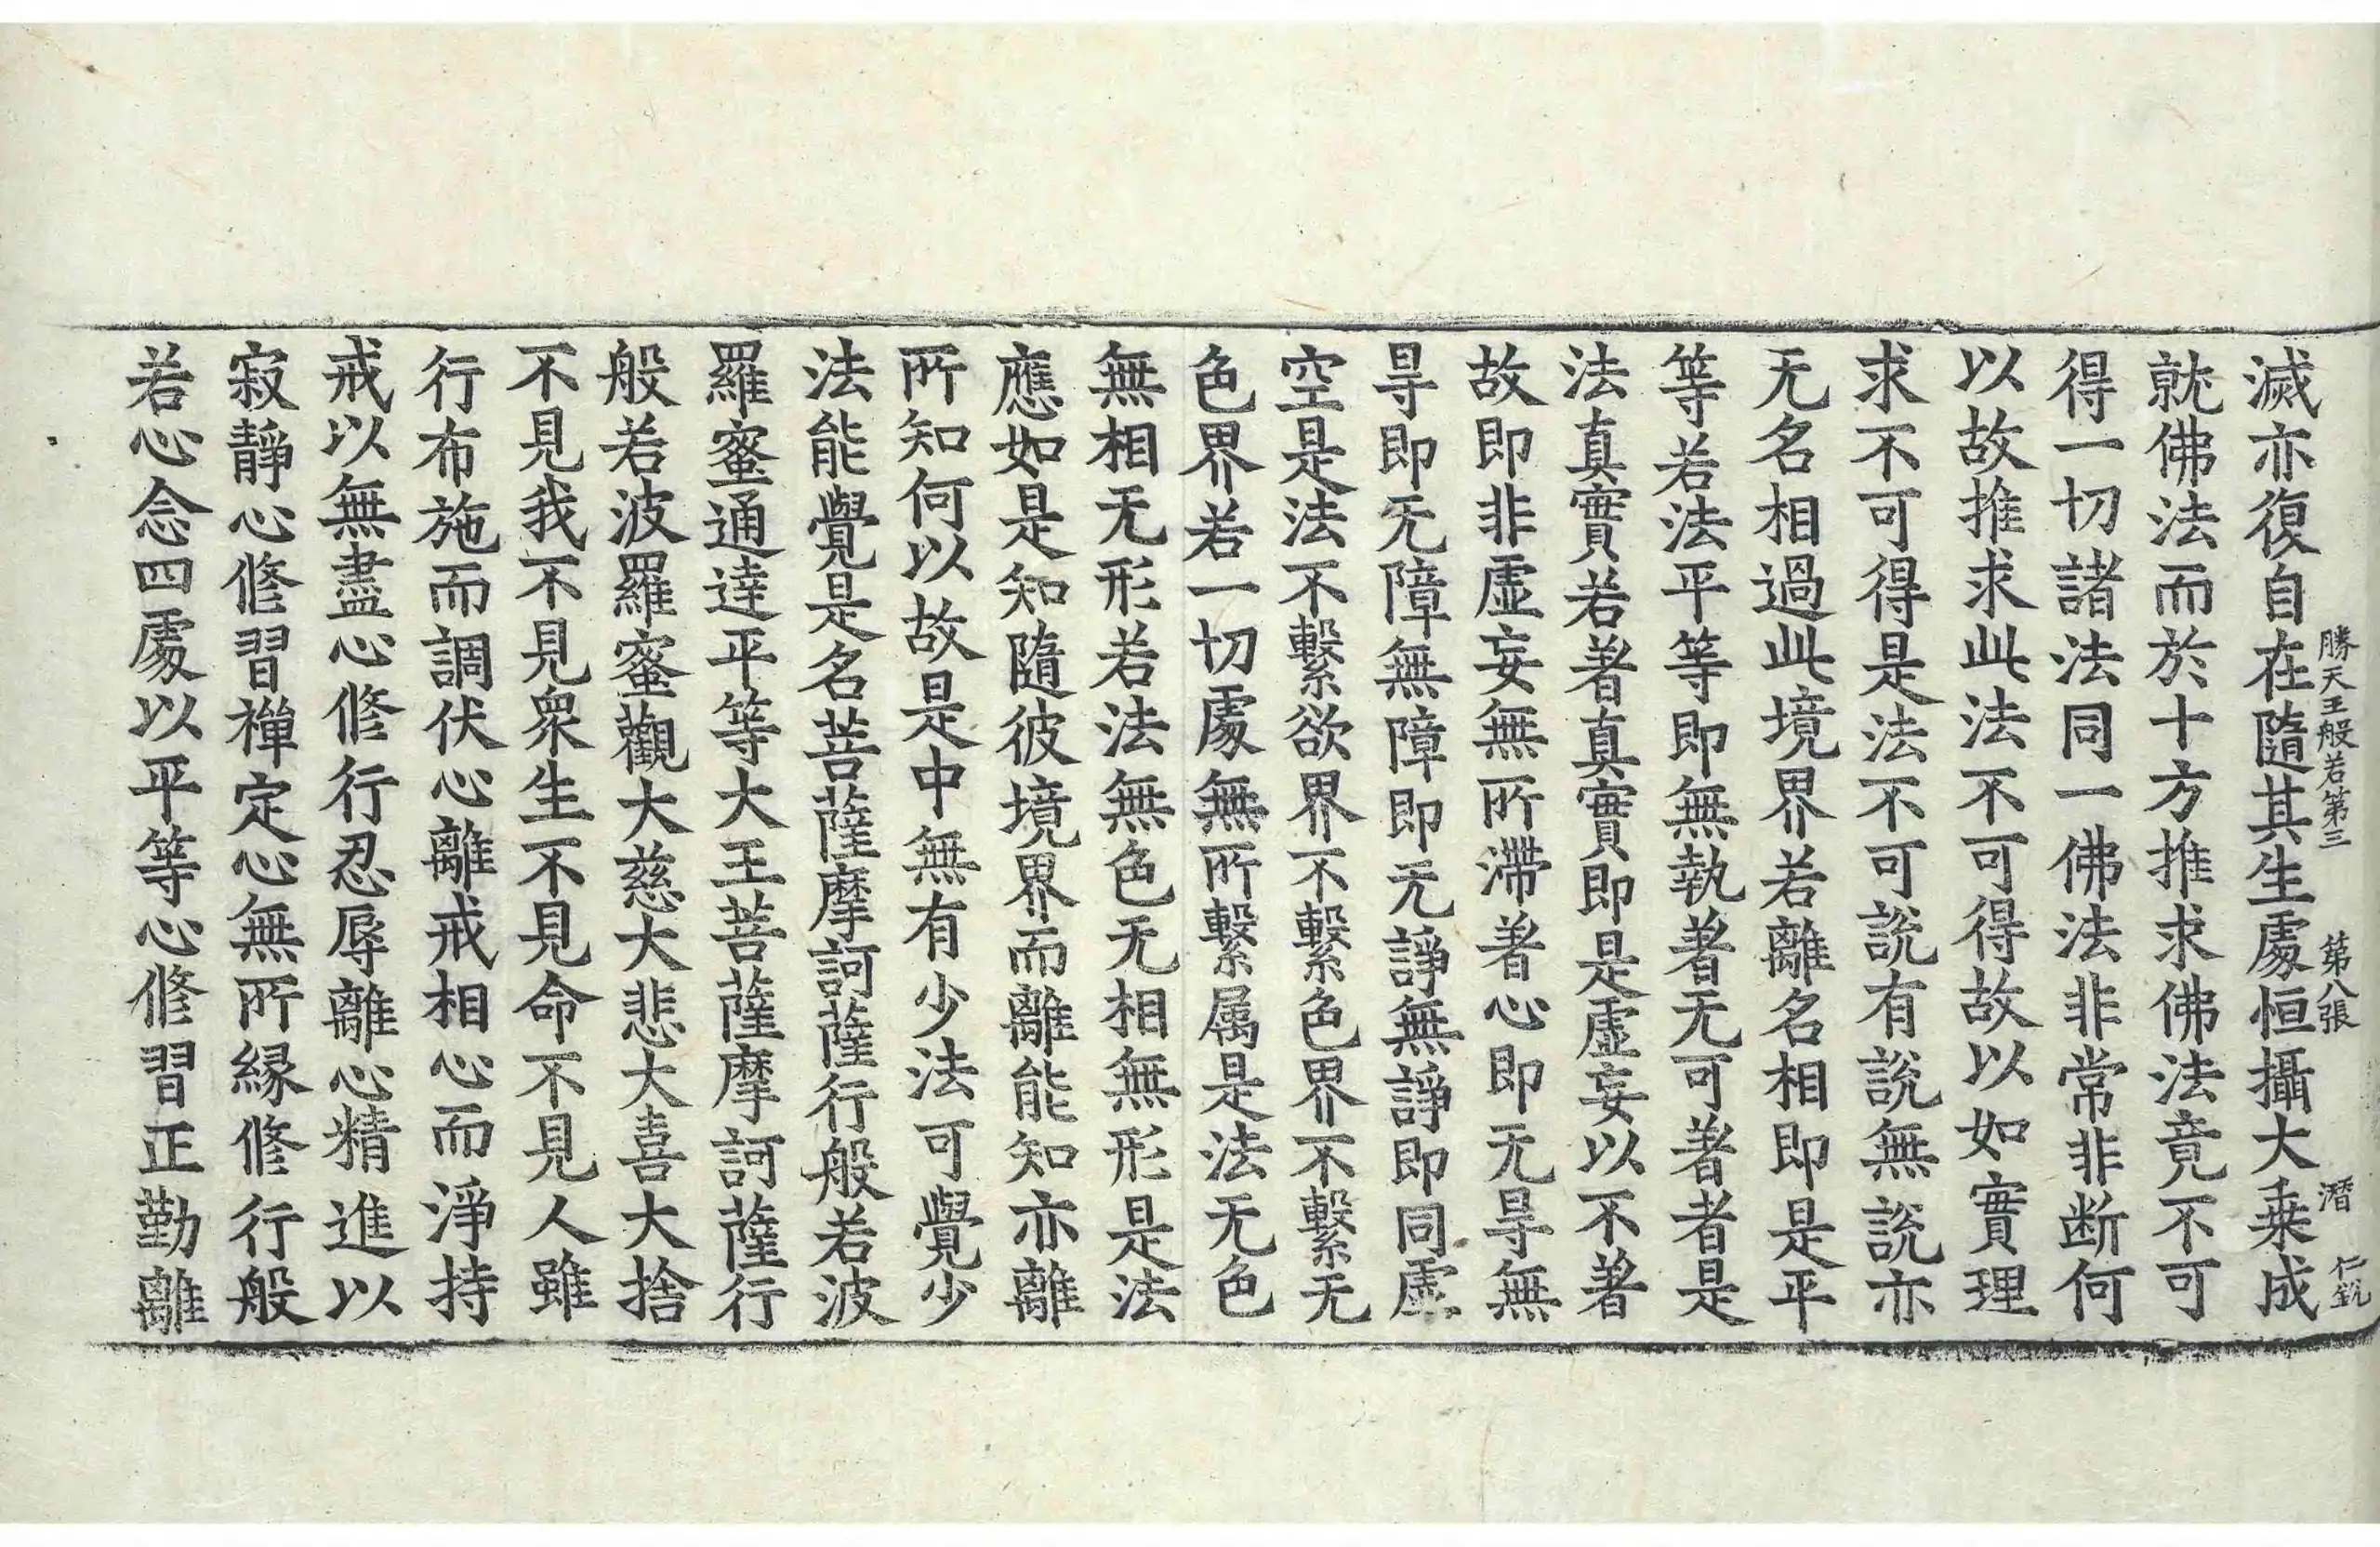 勝天王般若第三 第八張 潛 仁釼
滅亦復自在隨其生處恒攝大乗成
就佛法而於十方推求佛法竟不可
得一切諸法同一佛法非常非断何
以故推求此法不可得故以如實理
求不可得是法不可說有說無說亦
无名相過此境界若離名相即是平
等若法平等即無執著无可著者是
法真實若著真實即是虛妄以不著
故即非虛妄無所滯著心即无㝵無
㝵即无障無障即无諍無諍即同虛
空是法不繫欲界不繫色界不繫无
色界若一切處無所繫属是法无色
無相无形若法無色无相無形是法
應如是知隨彼境界而離能知亦離
所知何以故是中無有少法可覺少
法能覺是名菩薩摩訶薩行般若波
羅蜜通達平等大王菩薩摩訶薩行
般若波羅蜜觀大慈大悲大喜大捨
不見我不見衆生不見命不見人雖
行布施而調伏心離戒相心而淨持
戒以無盡心修行忍辱離心精進以
寂靜心修習禪定心無所縁修行般
若心念四處以平等心修習正勤離